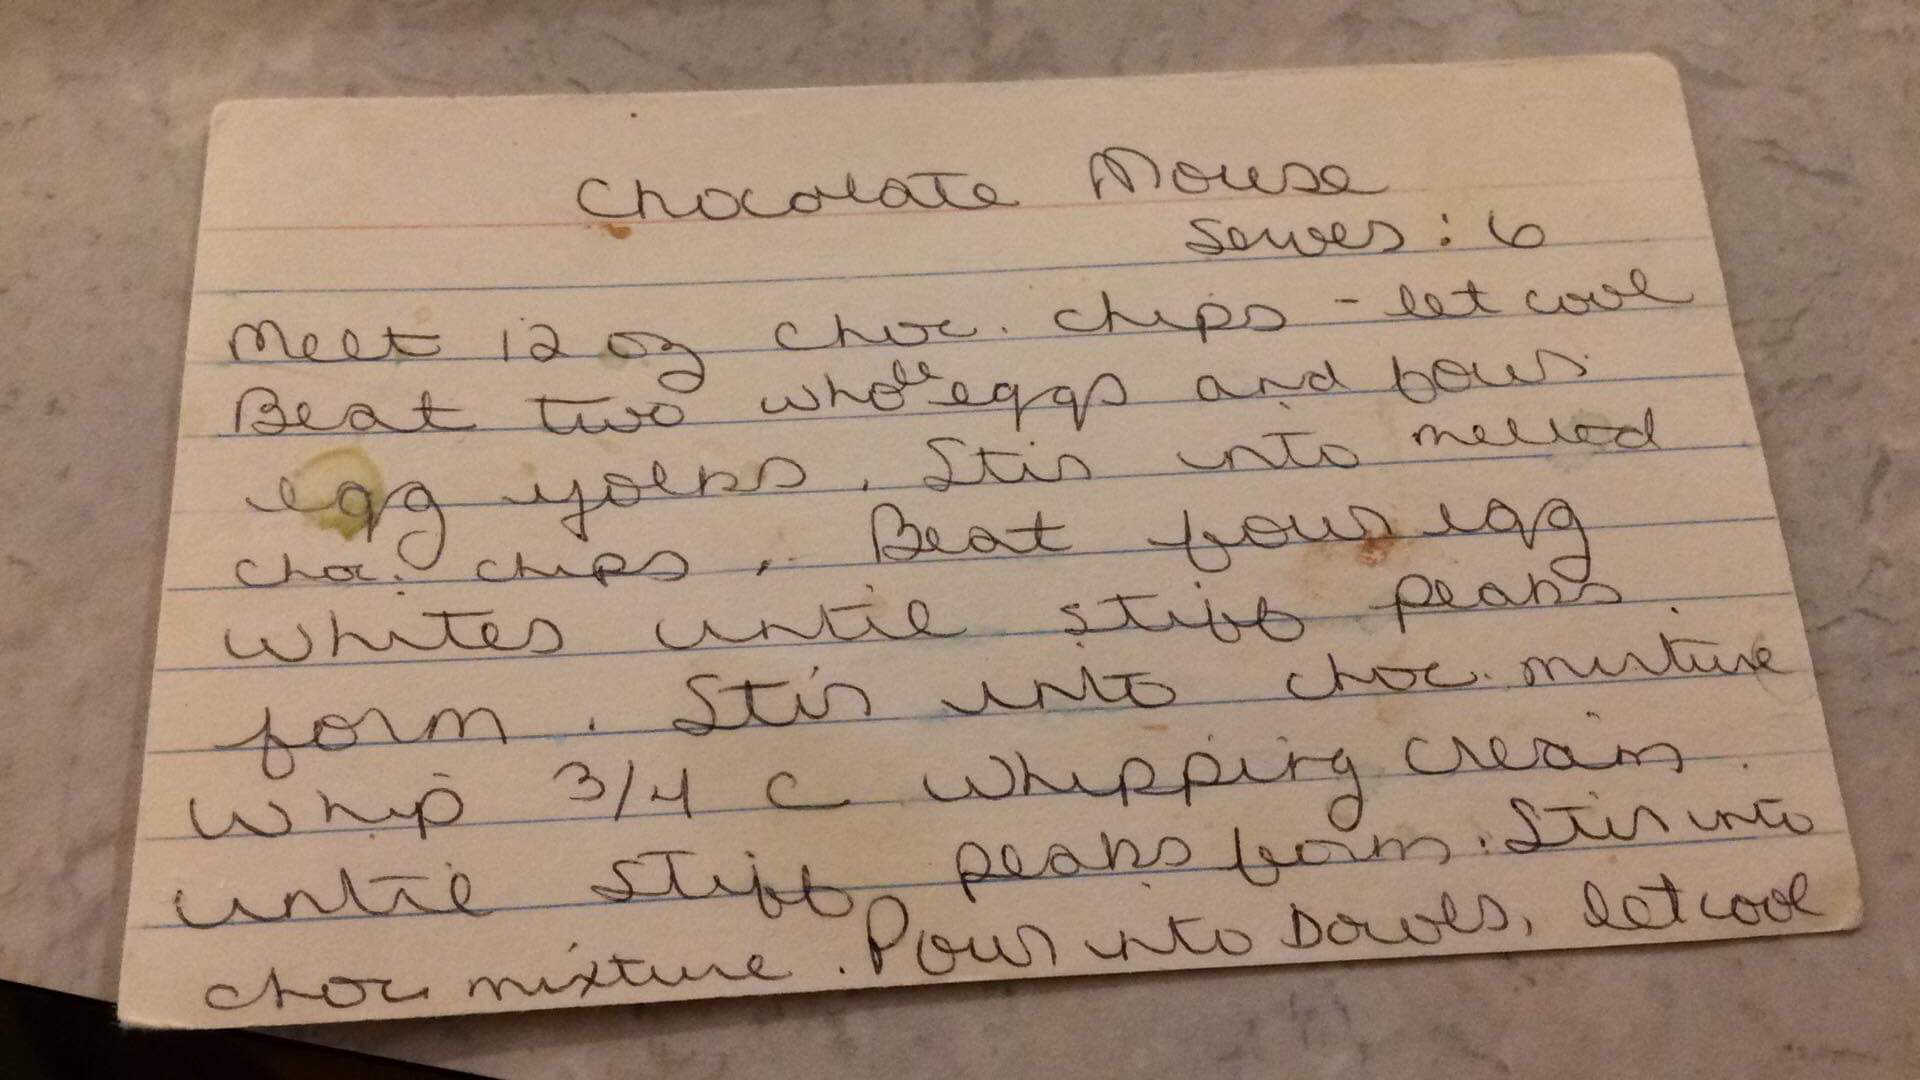 Chocolate Mouse
Serves: 6
Melt 12 oz choc. chips - let cool
Beat two whole eggs and four
egg yolks. Stir into melted
choc. chips. Beat four egg
whites until stiff peaks
form. Stir into choc. mixture
Whip 3/4 c whipping cream
until stiff peaks form. Stir into
choc mixture. Pour into bowls, let cool